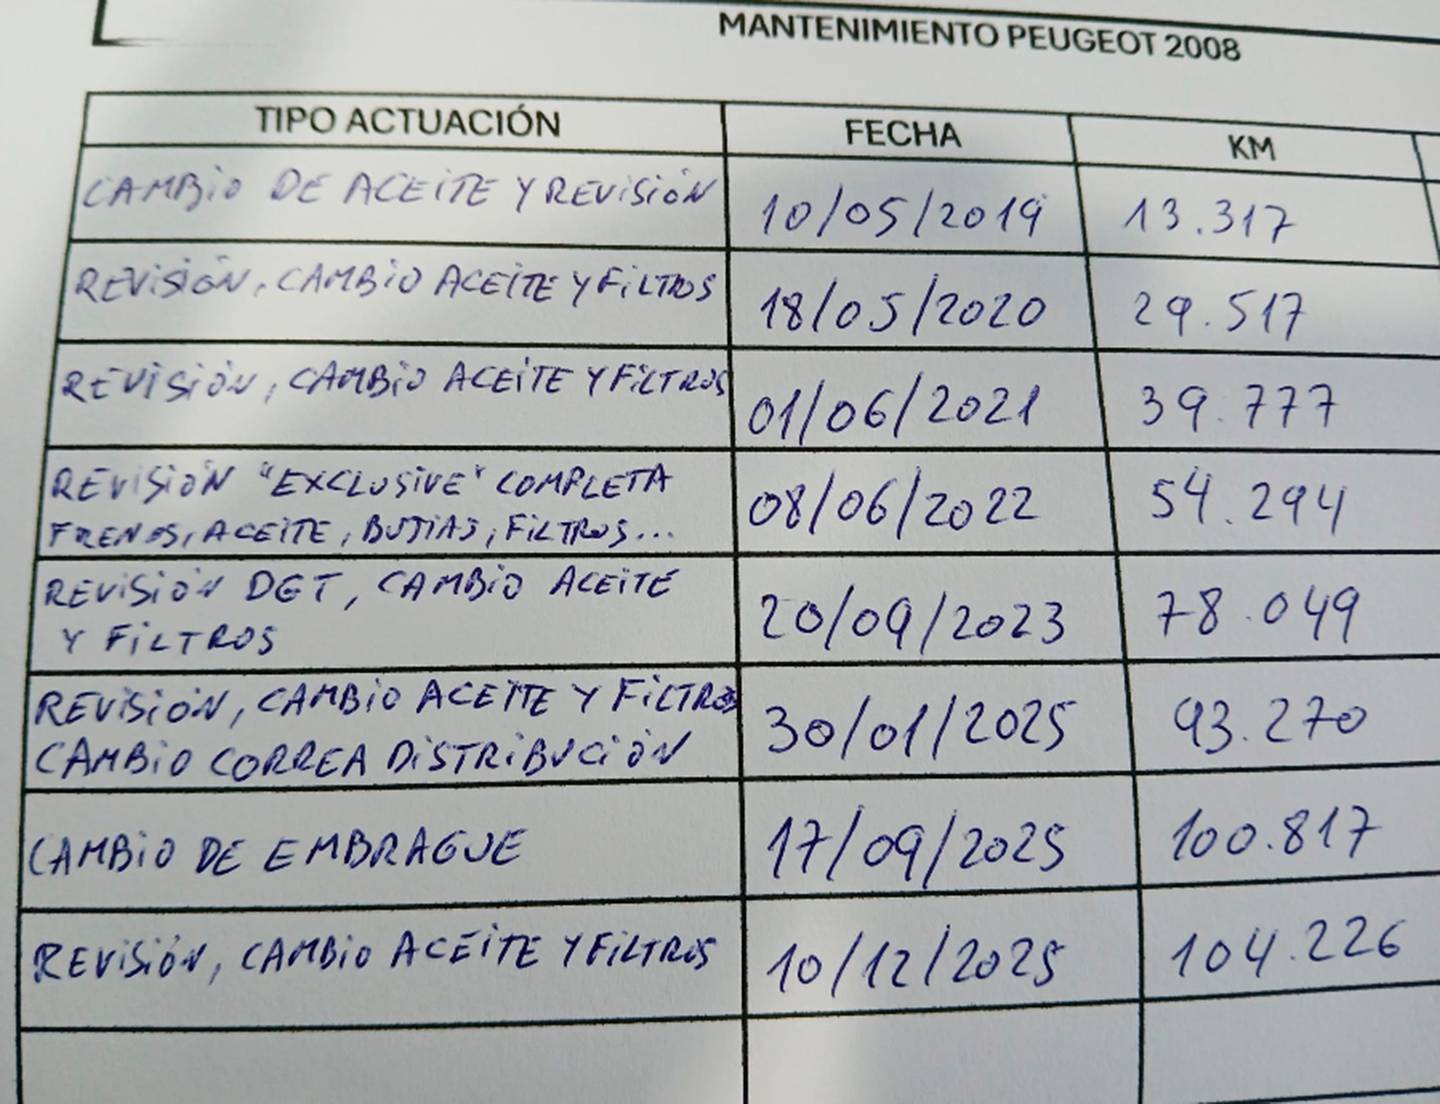 MANTENIMIENTO PEUGEOT 2008
TIPO ACTUACIÓN FECHA KM
CAMBIO DE ACEITE Y REVISIÓN 10/05/2019 13.317
REVISIÓN, CAMBIO ACEITE Y FILTROS 18/05/2020 29.517
REVISIÓN, CAMBIO ACEITE Y FILTROS 01/06/2021 39.777
REVISIÓN "EXCLUSIVE" COMPLETA
FRENOS, ACEITE, BUJIAS, FILTROS... 08/06/2022 54.294
REVISIÓN DGT, CAMBIO ACEITE
Y FILTROS 20/09/2023 78.049
REVISIÓN, CAMBIO ACEITE Y FILTROS
CAMBIO CORREA DISTRIBUCIÓN 30/01/2025 93.270
CAMBIO DE EMBRAGUE 17/09/2025 100.817
REVISIÓN, CAMBIO ACEITE Y FILTROS 10/12/2025 104.226